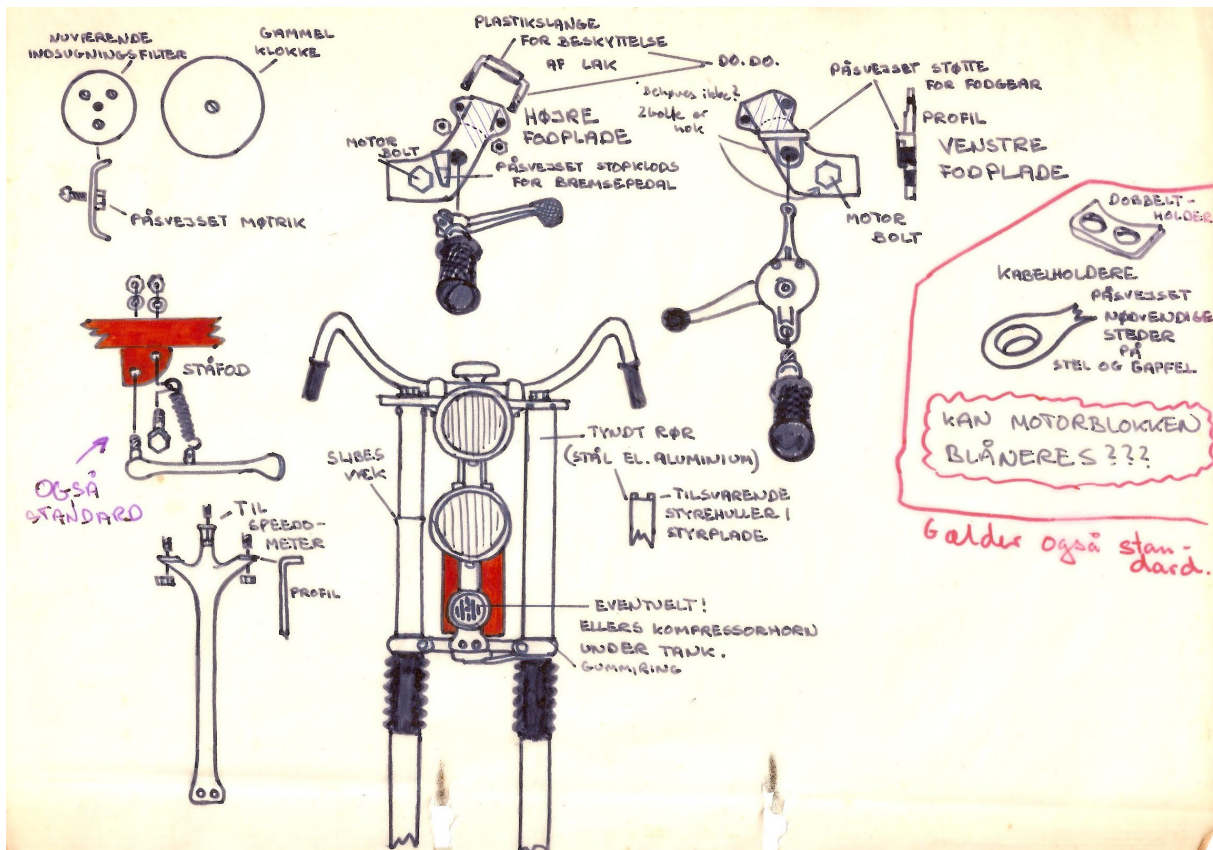 NUVÆRENDE
INDSUGNINGSFILTER
GAMMEL
KLOKKE
PÅSVEJSET MØTRIK
PLASTIKSLANGE
FOR BESKYTTELSE
AF LAK
DO. DO.
HØJRE
FODPLADE
MOTOR
BOLT
PÅSVEJSET STOPKLODS
FOR BREMSEPEDAL
Behøves ikke?
2 bolte er
nok
PÅSVEJSET STØTTE
FOR FODGEAR
PROFIL
VENSTRE
FODPLADE
MOTOR
BOLT
DOBBELT-
HOLDER
KABELHOLDERE
PÅSVEJSET
NØDVENDIGE
STEDER
PÅ
STEL OG GAFFEL
KAN MOTORBLOKKEN
BLÅNERES???
Gælder også stan-
dard.
STÅFOD
OGSÅ
STANDARD
TIL
SPEEDO-
METER
PROFIL
SLIBES
VÆK
TYNDT RØR
(STÅL EL. ALUMINIUM)
TILSVARENDE
STYREHULLER I
STYRPLADE
EVENTUELT!
ELLERS KOMPRESSORHORN
UNDER TANK.
GUMMIRING